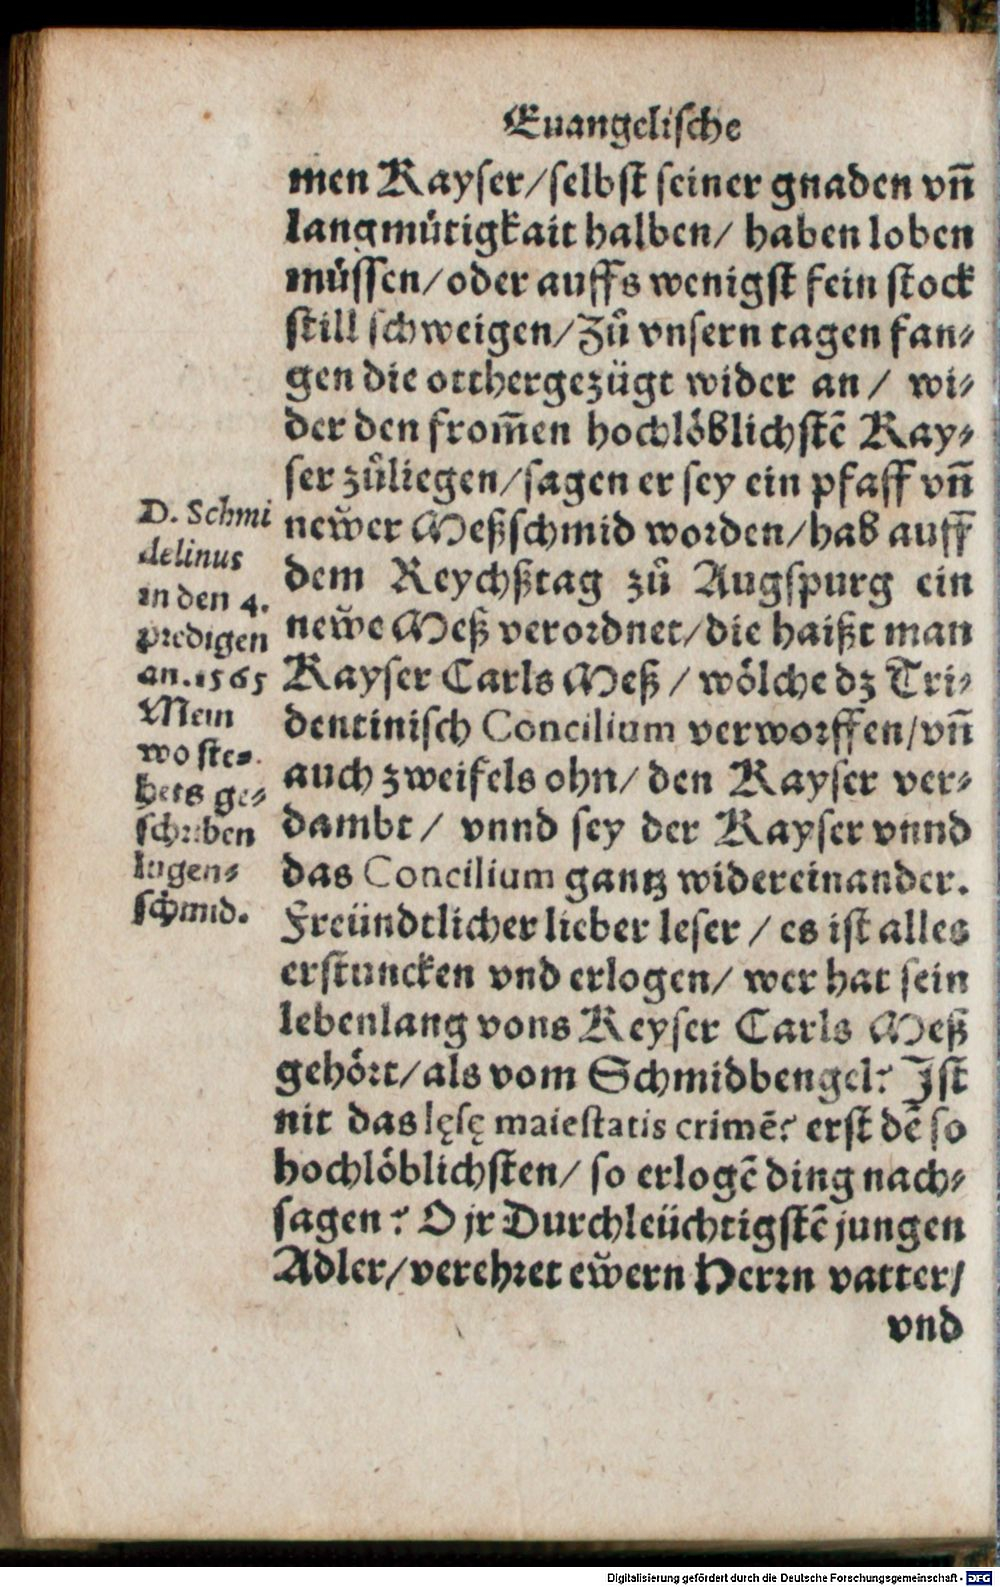 Euangelische
men Kayser/selbst seiner gnaden vn̄
langmuͤtigkait halben/ haben loben
muͤssen/oder auffs wenigst fein stock
still schweigen/Zuͦ vnsern tagen fan⸗
gen die otthergezügt wider an / wi⸗
der den from̄en hochloͤblichstē Kay⸗
ser zuͦliegen/sagen er sey ein pfaff vn̄
neẅer Meßschmid worden/hab auff
dem Reychßtag zuͦ Augspurg ein
neẅe Meß verordnet/die haißt man
Kayser Carls Meß / woͤlche dz Tri⸗
dentinisch Concilium verworffen/vn̄
auch zweifels ohn/ den Kayser ver⸗
dambt / vnnd sey der Kayser vnnd
das Concilium gantz widereinander.
Freündtlicher lieber leser / es ist alles
erstuncken vnd erlogen/ wer hat sein
lebenlang vons Keyser Carls Meß
gehoͤrt/als vom Schmidbengel? Ist
nit das lęsę maiestatis crimē? erst dē so
hochloͤblichsten/ so erlogē ding nach⸗
sagen? O jr Durchleüchtigstē jungen
Adler/verehret eẅern Herrn vatter/
vnd
D. Schmi
delinus
in den 4.
predigen
an. 1565
Mein
wo ste⸗
hets ge⸗
schriben
lugen⸗
schmid.
Digitalisierung gefördert durch die Deutsche Forschungsgemeinschaft - DFG